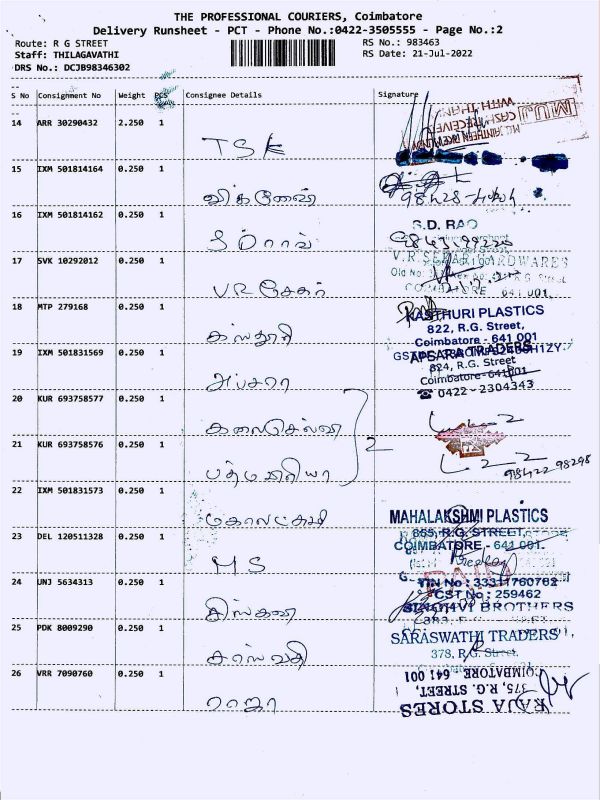 THE PROFESSIONAL COURIERS, Coimbatore
Delivery Runsheet - PCT - Phone No.:0422-3505555 - Page No.:2
Route: R G STREET
RS No.: 983463
Staff: THILAGAVATHI
RS Date: 21-Jul-2022
DRS No.: DCJB98346302
S No Consignment No Weight PCS Consignee Details Signature
14 ARR 30290432 2.250 1
TSK
WITH THANKS
CASH RECEIVED
M.U.J.
15 IXM 501814164 0.250 1
விக்னேஷ்
16 IXM 501814162 0.250 1
S.D. RAO
SDராவ்
17 SVK 10292012 0.250 1
V.R.SEKAR HARDWARES
R.G. Street
COIMBATORE 641 001.
VR சேகர்
18 MTP 279168 0.250 1
KASTHURI PLASTICS
822, R.G. Street,
Coimbatore - 641 001
கஸ்தூரி
19 IXM 501831569 0.250 1
APSARA TRADERS
824, R.G. Street
Coimbatore-641001
☎ 0422 - 2304343
அப்சரா
20 KUR 693758577 0.250 1
கலைசெல்வி
2
21 KUR 693758576 0.250 1
98422 98298
பத்மபிரியா
22 IXM 501831573 0.250 1
MAHALAKSHMI PLASTICS
மகாலட்சுமி
23 DEL 120511328 0.250 1
855, R.G. STREET,
COIMBATORE - 641 001.
MS
24 UNJ 5634313 0.250 1
TIN No : 33311760762
CST No : 259462
SINGHVI BROTHERS
25 PDK 8009290 0.250 1
SARASWATHI TRADERS
378, R.G. Street.
சரஸ்வதி
26 VRR 7090760 0.250 1
RAJA STORES
375, R.G. STREET,
COIMBATORE 641 001
ராஜா